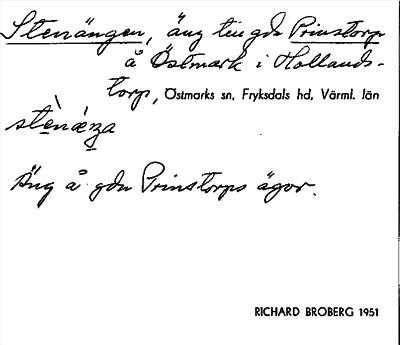 Stenängen, äng till gdn Prinstorp
å Östmark i Hollands-
torp, Östmarks sn, Fryksdals hd, Värml. län
stènǽŋa
Äng å gdn Prinstorps ägor.
RICHARD BROBERG 1951